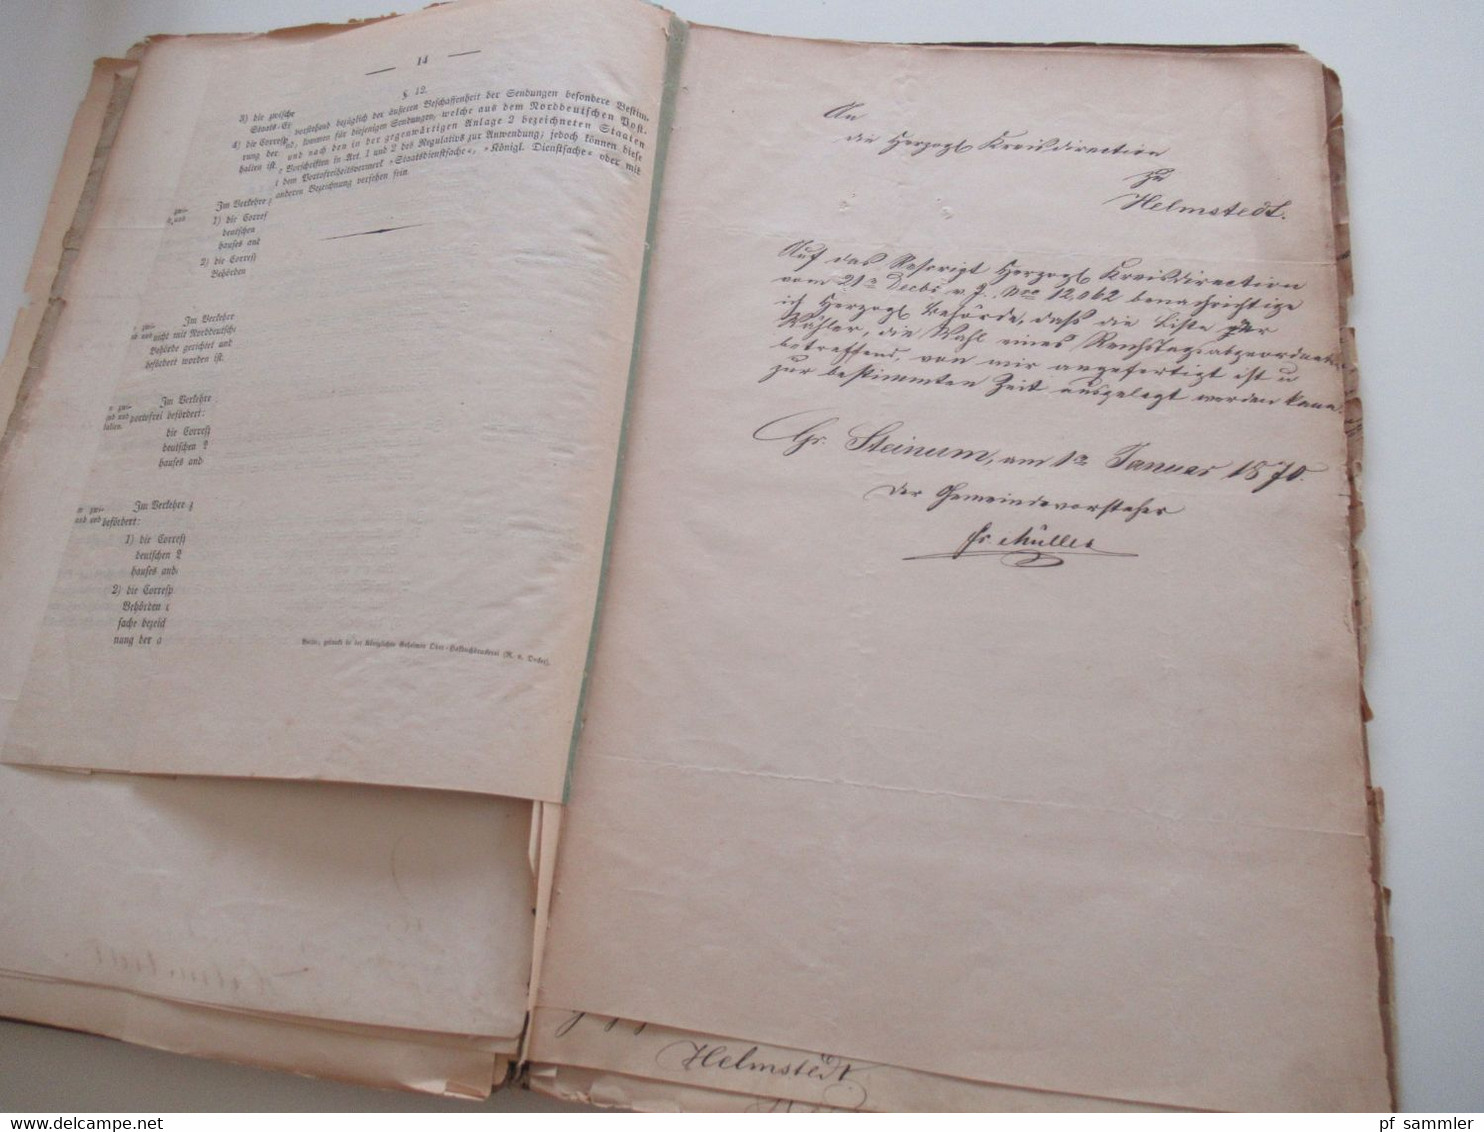 14
§ 12.
vorstehend bezüglich der äußeren Beschaffenheit der Sendungen besondere Bestim-
kommen für diejenigen Sendungen, welche aus dem Norddeutschen Post-
und nach den in der gegenwärtigen Anlage 2 bezeichneten Staaten
Vorschriften in Art. 1 und 2 des Regulativs zur Anwendung; jedoch können diese
dem Portofreiheitsvermerk »Staatsdienstsache«, »Königl. Dienstsache« oder mit
anderen Bezeichnung versehen sein.
3) die zwische
Staats-Ei
4) die Corresp
rung der
halten ist.
Im Verkehre z
1) die Corresp
deutschen
hauses and
2) die Corresp
Behörden
Im Verkehr
nicht mit Norddeutsche
Behörde gerichtet und
befördert worden ist.
Im Verkehre
portofrei befördert:
die Corresp
deutschen 2
hauses and
Im Verkehre z
befördert:
1) die Corresp
deutschen 2
hauses and
2) die Corresp
Behörden
sache bezeich
nung der
Berlin, gedruckt in der Königlichen Geheimen Ober-Hofbuchdruckerei (R. v. Decker).
An
die Herzogl Kreisdirection
zu
Helmstedt.
Auf das Rescript Herzogl Kreisdirection
vom 21n Decbr v. J. Nro 12,062 benachrichtige
ich Herzogl Behörde, dass die Liste der
Wähler, die Wahl eines Reichstagsabgeordneten
betreffend, von mir angefertigt ist u
zur bestimmten Zeit ausgelegt werden kann.
Gr. Steinum, am 1n Januar 1870.
Der Gemeindevorsteher
Fr. Müller
Helmstedt.
pf sammler